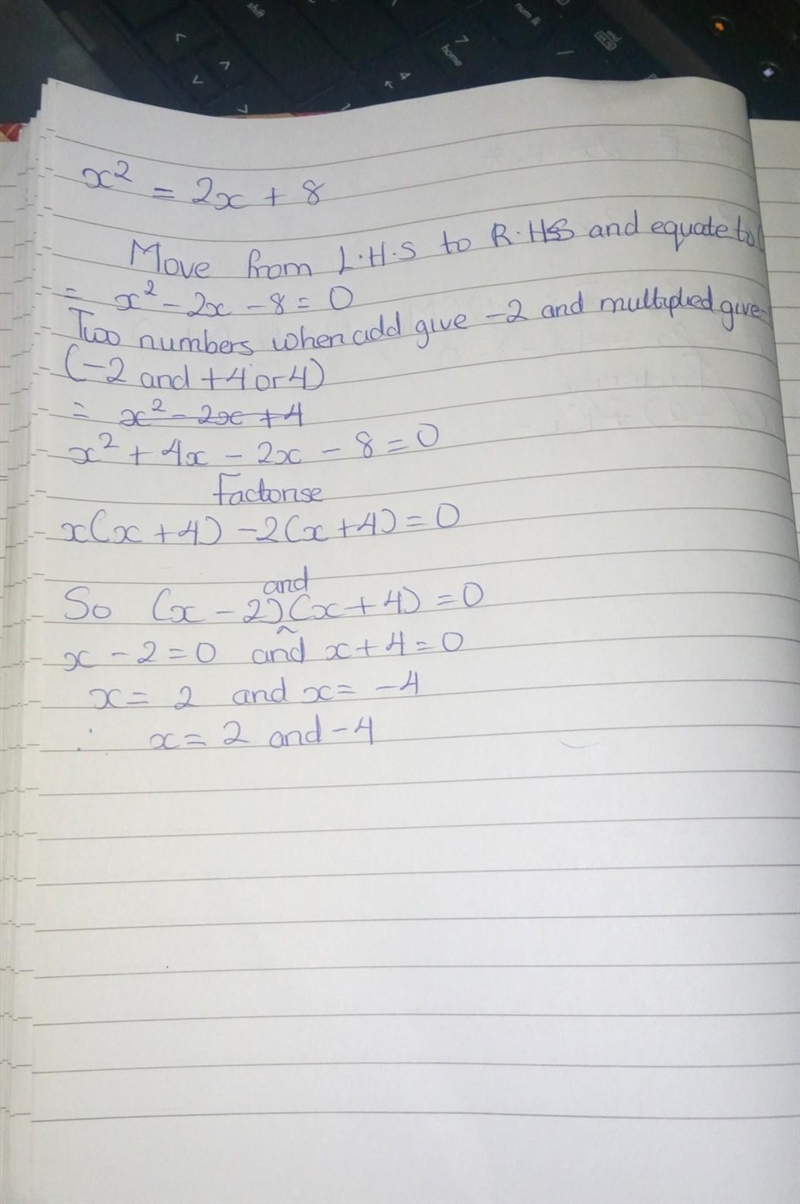 x² = 2x + 8
Move from L.H.S to R.HS and equate to
= x² - 2x - 8 = 0
Two numbers when add give -2 and multiplied give
(-2 and +4 or 4)
= x² - 2x + 4
x² + 4x - 2x - 8 = 0
factorise
x(x + 4) - 2(x + 4) = 0
and
So (x - 2)(x + 4) = 0
x - 2 = 0 and x + 4 = 0
x = 2 and x = -4
∴ x = 2 and -4